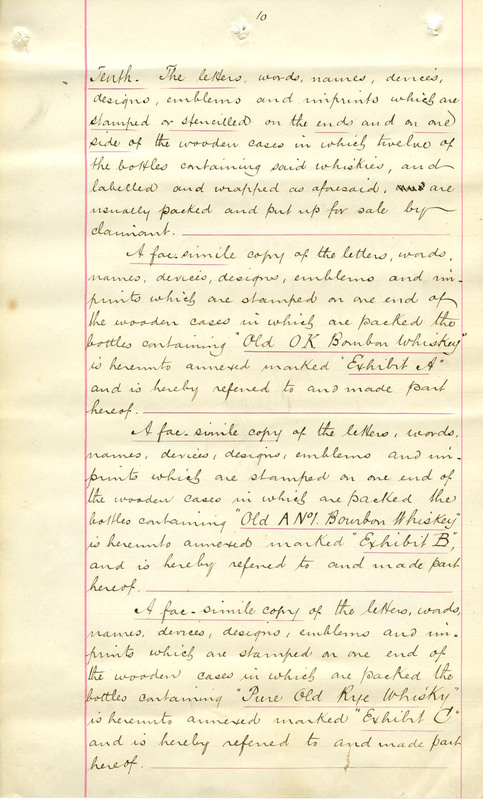 10
Tenth. The letters, words, names, devices,
designs, emblems and imprints which are
stamped or stencilled on the ends and on one
side of the wooden cases in which twelve of
the bottles containing said whiskies, and
labelled and wrapped as aforesaid, are
usually packed and put up for sale by
claimant.
A fac-simile copy of the letters, words,
names, devices, designs, emblems and im-
prints which are stamped on one end of
the wooden cases in which are packed the
bottles containing "Old OK Bourbon Whiskey"
is hereunto annexed marked "Exhibit A"
and is hereby referred to and made part
hereof.
A fac-simile copy of the letters, words,
names, devices, designs, emblems and im-
prints which are stamped on one end of
the wooden cases in which are packed the
bottles containing "Old A No1. Bourbon Whiskey"
is hereunto annexed marked "Exhibit B",
and is hereby referred to and made part
hereof.
A fac-simile copy of the letters, words,
names, devices, designs, emblems and im-
prints which are stamped on one end of
the wooden cases in which are packed the
bottles containing "Pure Old Rye Whisky"
is hereunto annexed marked "Exhibit C"
and is hereby referred to and made part
hereof.